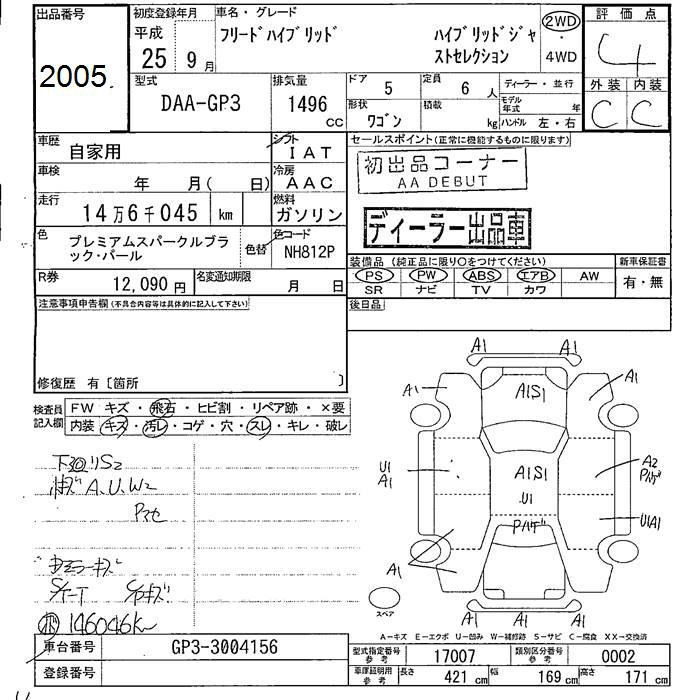 出品番号
2005.
初度登録年月
平成
25 9月
車名・グレード
フリードハイブリッド ハイブリッドジャ
ストセレクション
2WD
・
4WD
評価点
4
外装 内装
C C
型式
DAA-GP3
排気量
1496
CC
ドア
5
定員
6 人
ディーラー・並行
形状
ワゴン
積載
kg
モデル
年式 年
ハンドル 左・右
車歴
自家用
シフト
IAT
車検
年 月( 日)
冷房
AAC
走行
14万6千045 km
燃料
ガソリン
色
プレミアムスパークルブラ
ック・パール
色替
色コード
NH812P
R券
12,090 円
名変通知期限
月 日
セールスポイント(正常に機能するものに限ります)
初出品コーナー
AA DEBUT
ディーラー出品車
装備品 (純正品に限り○をつけてください) 新車保証書
PS PW ABS エアB AW
SR ナビ TV カワ
有・無
後日品
注意事項申告欄(不具合内容等は具体的に記入して下さい)
修復歴 有〔箇所 〕
検査員
記入欄
FW キズ・飛石・ヒビ割・リペア跡・×要
内装 キズ・汚レ・コゲ・穴・スレ・キレ・破レ
S2
A.U.W2
146046K
A1 A1
A1 A1S1 A1
U1
A1
A1S1
U1
A2
Pハゲ
Pハゲ
U1A1
A1
A1 A1
スペア
A-キズ E-エクボ U-凹み W-補修跡 S-サビ C-腐食 XX-交換済
車台番号
GP3-3004156
登録番号
型式指定番号
参考
17007
類別区分番号
参考
0002
車庫証明用
参考
長さ
421 cm
幅
169 cm
高さ
171 cm